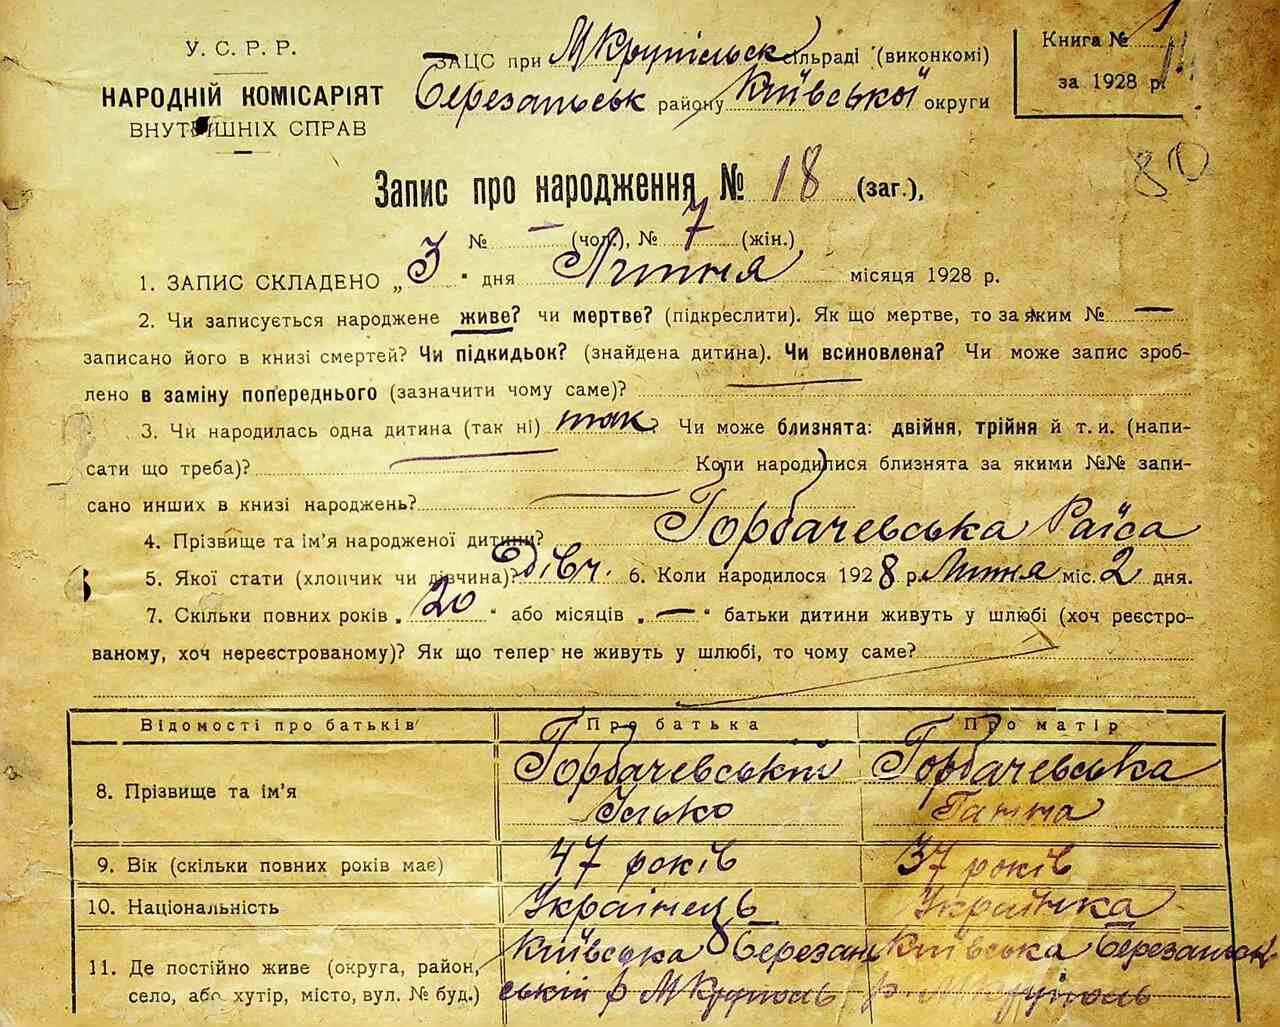 У. С. Р. Р.
НАРОДНІЙ КОМІСАРІЯТ
ВНУТРІШНІХ СПРАВ
ЗАЦС при М Крупільськ сільраді (виконкомі)
Березанськ району Київської округи
Книга № 1
за 1928 р.
80
Запис про народження № 18 (заг.),
№ — (чол.), № 7 (жін.)
1. ЗАПИС СКЛАДЕНО „3" дня Липня місяця 1928 р.
2. Чи записується народжене живе? чи мертве? (підкреслити). Як що мертве, то за яким № —
записано його в книзі смертей? Чи підкидьок? (знайдена дитина). Чи всиновлена? Чи може запис зроб-
лено в заміну попереднього (зазначити чому саме)? —
3. Чи народилась одна дитина (так ні) так. Чи може близнята: двійня, трійня й т. и. (напи-
сати що треба)? — Коли народилися близнята за якими №№ запи-
сано инших в книзі народжень? —
4. Прізвище та ім'я народженої дитини? Горбачевська Раїса
5. Якої стати (хлопчик чи дівчина)? дівч. 6. Коли народилося 1928 р. Липня міс. 2 дня.
7. Скільки повних років „20" або місяців „—" батьки дитини живуть у шлюбі (хоч реєстро-
ваному, хоч нереєстрованому)? Як що тепер не живуть у шлюбі, то чому саме?
Відомості про батьків Про батька Про матір
8. Прізвище та ім'я Горбачевський Ілько Горбачевська Ганна
9. Вік (скільки повних років має) 47 років 37 років
10. Національність Украінець Украінка
11. Де постійно живе (округа, район,
село, або хутір, місто, вул. № буд.)
Київська Березан
ський р М Круполь
Київська Березанськ
р. М Круполь